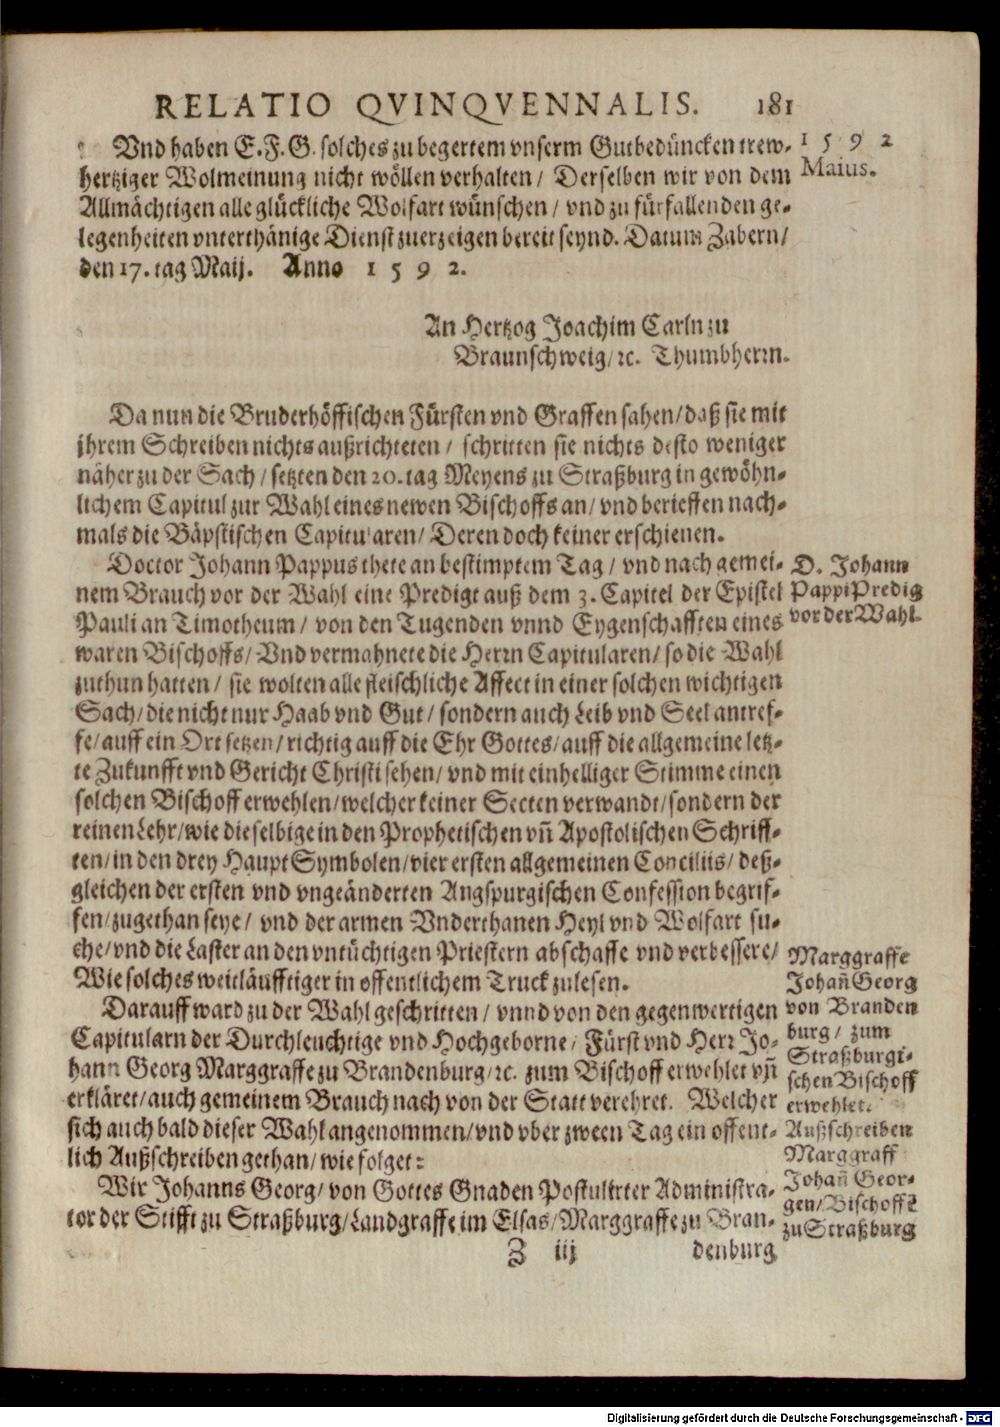 RELATIO QVINQVENNALIS. 181
1592
Maius.
Vnd haben E.F.G. solches zu begertem vnserm Gutbedüncken trew-
hertziger Wolmeinung nicht wöllen verhalten/ Derselben wir von dem
Allmächtigen alle glückliche Wolfart wünschen/ vnd zu fürfallenden ge-
legenheiten vnterthänige Dienst zuerzeigen bereit seynd. Datum Zabern/
den 17. tag Maij. Anno 1592.
An Hertzog Joachim Carln zu
Braunschweig/ ꝛc. Thumbherrn.
Da nun die Bruderhöffischen Fürsten vnd Graffen sahen/ daß sie mit
jhrem Schreiben nichts außrichteten/ schritten sie nichts desto weniger
näher zu der Sach/ setzten den 20. tag Meyens zu Straßburg in gewöhn-
lichem Capitul zur Wahl eines newen Bischoffs an/ vnd berieffen nach-
mals die Bäpstischen Capitularen/ Deren doch keiner erschienen.
Doctor Johann Pappus thete an bestimptem Tag/ vnd nach gemei-
nem Brauch vor der Wahl eine Predigt auß dem 3. Capitel der Epistel
Pauli an Timotheum/ von den Tugenden vnnd Eygenschafften eines
waren Bischoffs/ Vnd vermahnete die Herrn Capitularen/ so die Wahl
zuthun hatten/ sie wolten alle fleischliche Affect in einer solchen wichtigen
Sach/ die nicht nur Haab vnd Gut/ sondern auch Leib vnd Seel antref-
fe/ auff ein Ort setzen/ richtig auff die Ehr Gottes/ auff die allgemeine letz-
te Zukunfft vnd Gericht Christi sehen/ vnd mit einhelliger Stimme einen
solchen Bischoff erwehlen/ welcher keiner Secten verwandt/ sondern der
reinen Lehr/ wie dieselbige in den Prophetischen vñ Apostolischen Schriff-
ten/ in den drey Haupt Symbolen/ vier ersten allgemeinen Conciliis/ deß-
gleichen der ersten vnd vngeänderten Angspurgischen Confession begrif-
fen/ zugethan seye/ vnd der armen Vnderthanen Heyl vnd Wolfart su-
che/ vnd die Laster an den vntüchtigen Priestern abschaffe vnd verbessere/
Wie solches weitläufftiger in offentlichem Truck zulesen.
D. Johann
Pappi Predig
vor der Wahl.
Darauff ward zu der Wahl geschritten/ vnnd von den gegenwertigen
Capitularn der Durchleuchtige vnd Hochgeborne/ Fürst vnd Herr Jo-
hann Georg Marggraffe zu Brandenburg/ ꝛc. zum Bischoff erwehlet vñ
erkläret/ auch gemeinem Brauch nach von der Statt verehret. Welcher
sich auch bald dieser Wahl angenommen/ vnd vber zween Tag ein offent-
lich Außschreiben gethan/ wie folget:
Marggraffe
Johañ Georg
von Branden
burg/ zum
Straßburgi-
schen Bischoff
erwehlet.
Wir Johanns Georg/ von Gottes Gnaden Postulirter Administra-
tor der Stifft zu Straßburg/ Landgraffe im Elsas/ Marggraffe zu Bran-
Außschreiben
Marggraff
Johañ Geor-
gen/ Bischoffē
zu Straßburg
Z iij denburg
Digitalisierung gefördert durch die Deutsche Forschungsgemeinschaft - DFG